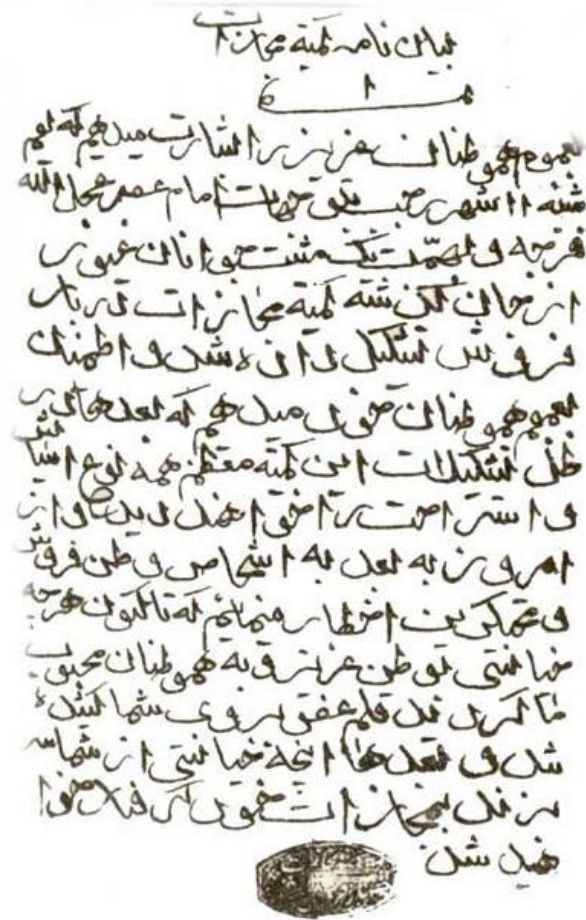 بیان نامه کمیته مجازات
بعموم هموطنان عزیز بشارت میدهیم که بعم
شنبه ۱۱ شهر رجب بتوجهات امام عصر عجل الله
فرجه و بهمّت یک مشت جوانان غیور
از جان گذشته کمیته مجازات در بار
فروش تشکیل داده شد و اطمنان
بعموم هموطنان خود میدهیم که بعدها در
ظل تشکیلات این کمیته معظم همه نوع اسایش
و استراحت را خواهند دید و از
امروز به بعد به اشخاص وطن فروش
و محتکرین اخطار مینمائیم که تا کنون هرچه
خیانتی بوطن عزیز و به هموطنان محبوب
ما کردند قلم عفو بروی شما کشیده
شد و بعدها انچه خیانتی از شما سر
بزند بمجازات خود گرفتار خوا
هید شد